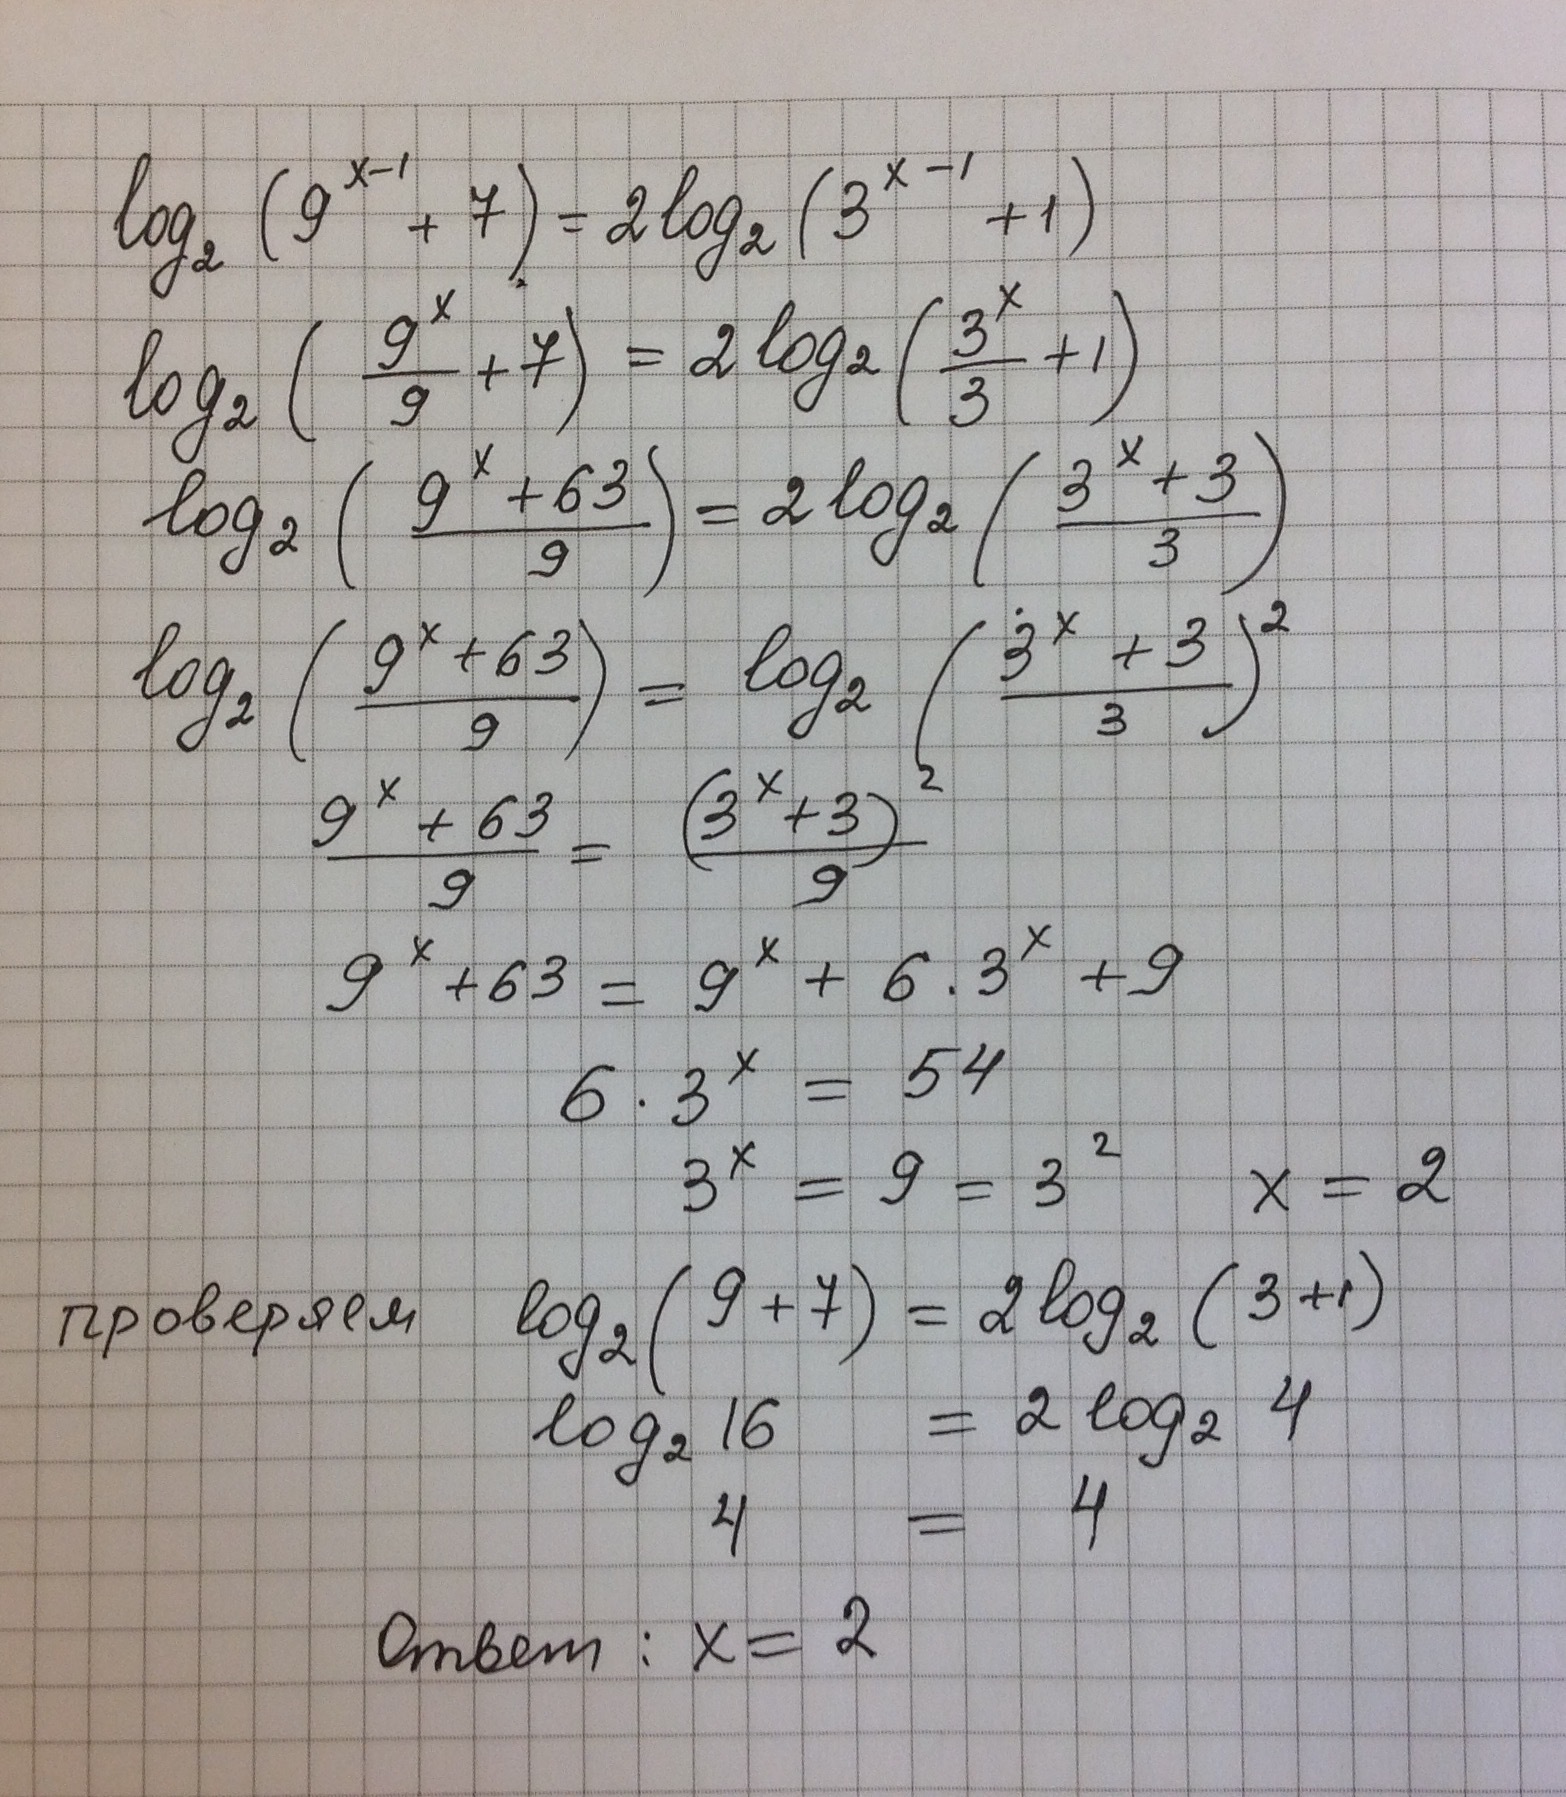 log₂(9^(x-1) + 7) = 2log₂(3^(x-1) + 1)
log₂(9^x/9 + 7) = 2log₂(3^x/3 + 1)
log₂((9^x + 63)/9) = 2log₂((3^x + 3)/3)
log₂((9^x + 63)/9) = log₂((3^x + 3)/3)²
(9^x + 63)/9 = (3^x + 3)²/9
9^x + 63 = 9^x + 6 · 3^x + 9
6 · 3^x = 54
3^x = 9 = 3² x = 2
проверяем log₂(9 + 7) = 2log₂(3 + 1)
log₂ 16 = 2 log₂ 4
4 = 4
Ответ : x = 2